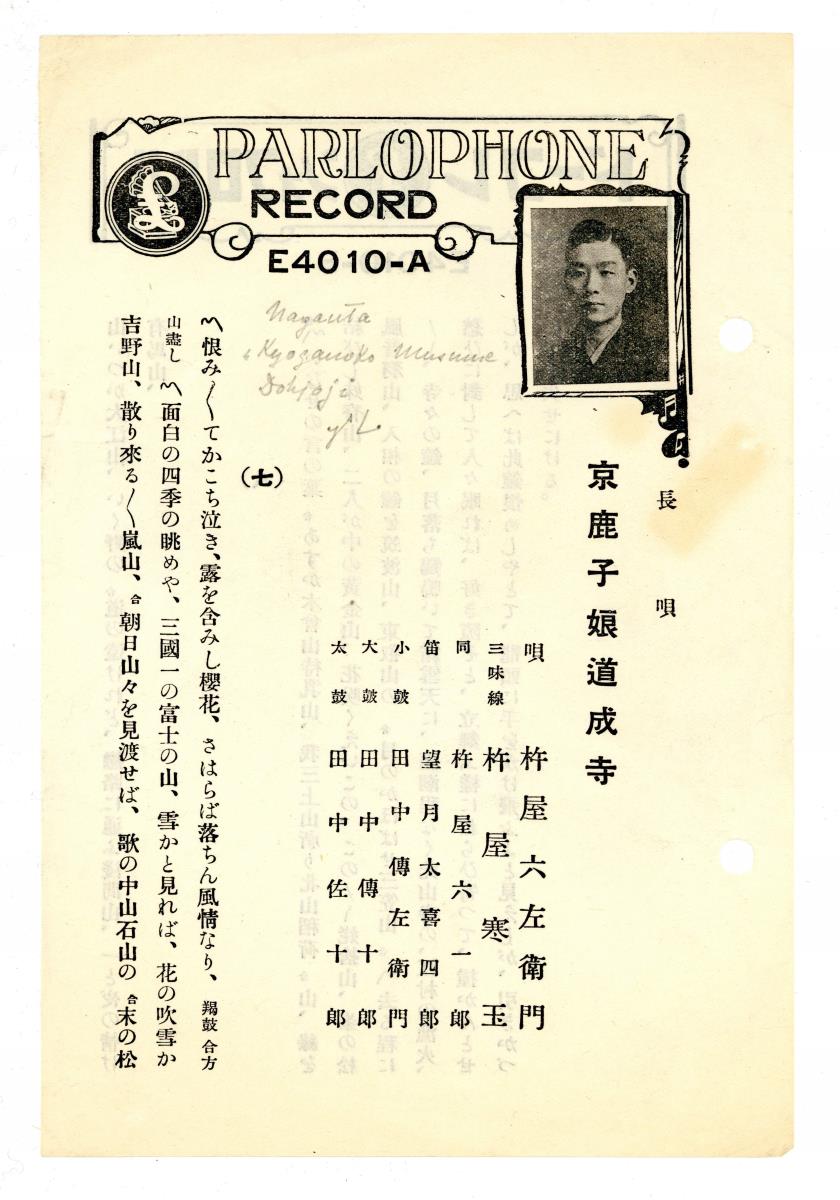 PARLOPHONE
RECORD
E4010-A
Nagauta
Kyoganoko Musume
Dohjoji
長唄
京鹿子娘道成寺
唄 杵屋六左衛門
三味線 杵屋寒玉
同 杵屋六一郎
笛 望月太喜四郎
小鼓 田中傳左衛門
大鼓 田中傳十郎
太鼓 田中佐十郎
(七)
〽恨み〳〵てかこち泣き、露を含みし櫻花、さはらば落ちん風情なり、 羯鼓 合方
山盡し 〽面白の四季の眺めや、三國一の富士の山、雪かと見れば、花の吹雪か
吉野山、散り來る〳〵嵐山、合 朝日山々を見渡せば、歌の中山石山の 合 末の松